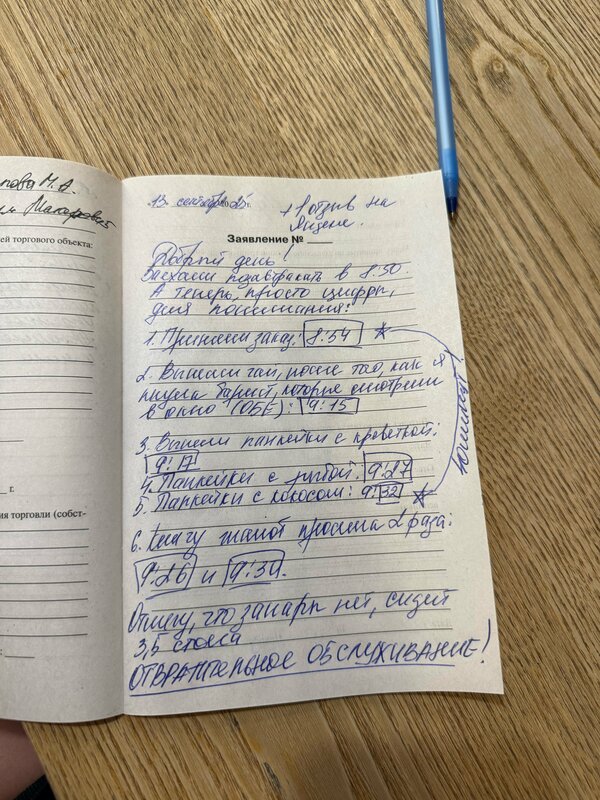 пова М. А.
Макарович
ей торгового объекта:
г.
ия торговли (собст-
13 сентября 25 г.
+ 1 отзыв на
Яндекс.
Заявление №
Добрый день!
Заехали позавтракать в 8:30.
А теперь, просто цифры,
для понимания:
1. Приняли заказ: 8:54
2. Вынесли чай, после того, как я
пнула барист, которые смотрели
в окно (ОБЕ): 9:15
3. Вынесли панкейки с креветкой:
9:17
4. Панкейки с рыбой: 9:27
5. Панкейки с кокосом: 9:32
6. Книгу жалоб просила 2 раза:
9:26 и 9:30.
Отмечу, что запары нет, сидят
3,5 стола
ОТВРАТИТЕЛЬНОЕ ОБСЛУЖИВАНИЕ!